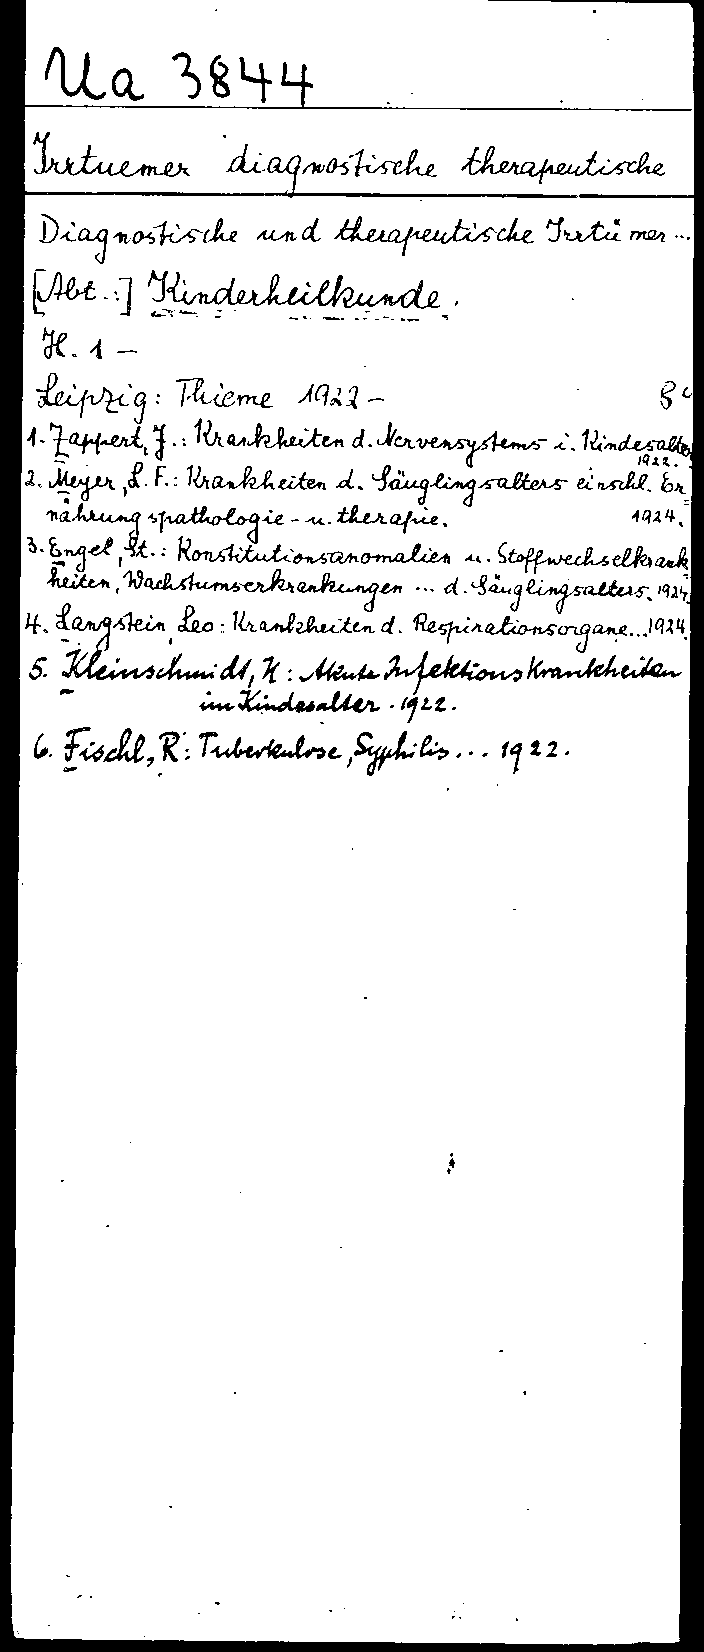 Ua 3844
Irrtuemer diagnostische therapeutische
Diagnostische und therapeutische Irrtümer...
[Abt.:] Kinderheilkunde.
H. 1 –
Leipzig: Thieme 1922 – 8°
1. Zappert, J.: Krankheiten d. Nervensystems i. Kindesalter
1922.
2. Meyer, L. F.: Krankheiten d. Säuglingsalters einschl. Er
nährungspathologie- u. therapie. 1924.
3. Engel, St.: Konstitutionsanomalien u. Stoffwechselkrank
heiten, Wachstumserkrankungen ... d. Säuglingsalters. 1924.
4. Langstein, Leo: Krankheiten d. Respirationsorgane...1924.
5. Kleinschmidt, H: Akute Infektionskrankheiten
im Kindesalter. 1922.
6. Fischl, R: Tuberkulose, Syphilis... 1922.